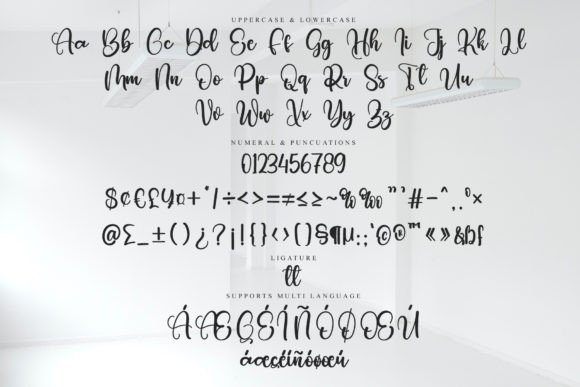 UPPERCASE & LOWERCASE
Aa Bb Cc Dd Ee Ff Gg Hh Ii Jj Kk Ll
Mm Nn Oo Pp Qq Rr Ss Tt Uu
Vv Ww Xx Yy Zz
NUMERAL & PUNCUATIONS
0123456789
$¢€£¥¤+*/÷<>=≠≤≥~%‰"'#-^,.°×
@Σ_±()¿?¡!{}‹›[]§¶µ:;'©®™«»&
LIGATURE
tt
SUPPORTS MULTI LANGUAGE
ÁÆÇÉÍÑÓØŒÚ
áæçéíñóøœú